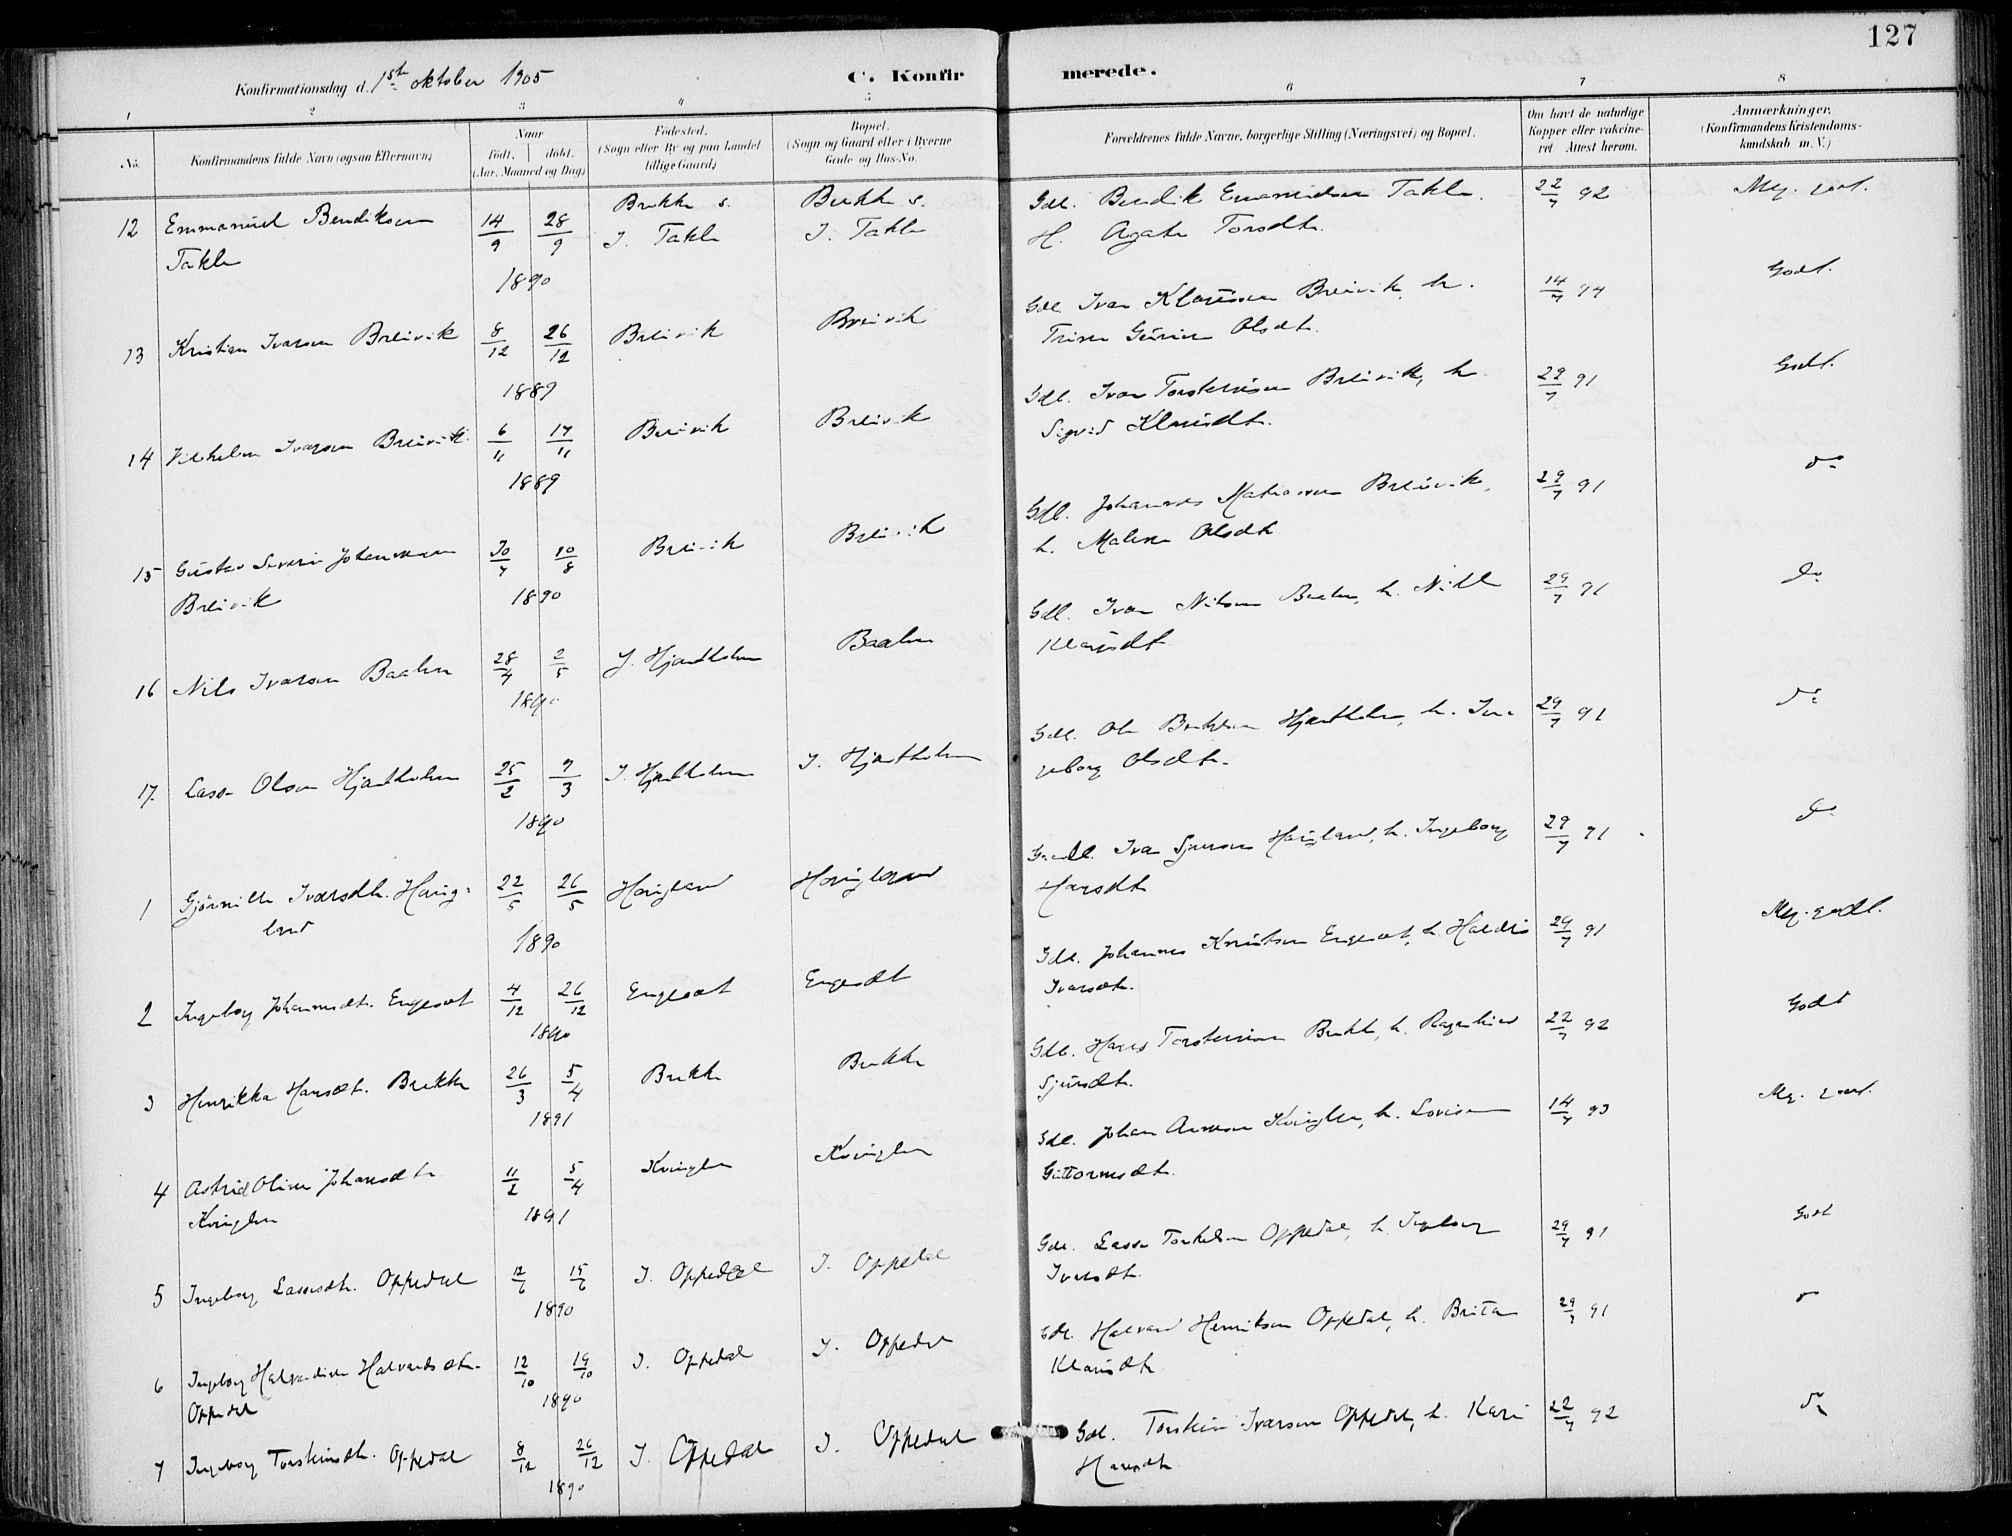 127
Konfirmationsdag d. 1ste oktober 1905
C. Konfirmerede.
1 2 3 4 5 6 7 8
No.
Konfirmandens fulde Navn (ogsaa Efternavn)
Naar
født. døbt.
(Aar, Maaned og Dag)
Fødested.
(Sogn eller By og paa Landet
tillige Gaard)
Bopæl.
(Sogn og Gaard eller i Byerne
Gade og Hus-No.
Forældrenes fulde Navne, borgerlige Stilling (Næringsvei) og Bopæl.
Om havt de naturlige
Kopper eller vakcine-
ret Attest herom.
Anmærkninger.
(Konfirmandens Kristendoms-
kundskab m. V.)
12 Emmanuel Bendiksen 14/9 28/9 Brekke s. Brekke s. Gdl. Bendik Emanuelsen Takle. 22/7 92 Meg. godt.
Takle I. Takle I. Takle H. Agate Torsdtr.
1890
13 Kristian Ivarsen Breivik 8/12 26/12 Breivik Breivik Gdl. Ivar Klausen Breivik, h. 14/7 94 Godt.
Trine Olsdtr.
1889
14 Vilhelm Ivarsen Breivik 6/11 17/11 Breivik Breivik Gdl. Ivar Torsteinsen Breivik, h. 29/7 91 Godt.
Sigrid Klausdtr.
1889
15 Gustav Severin Johannesen 30/7 10/8 Breivik Breivik Gdl. Johannes Matiassen Breivik, 29/7 91 do
Breivik h. Malene Olsdtr
1890
16 Nils Ivarsen Baalen 28/4 2/5 Y. Hjartholm Baalen Gdl. Ivar Nilsen Baalen, h. 29/7 91 do
Klausdtr
1890
17. Lasse Olsen Hjartholm 25/2 9/3 I. Hjartholm I. Hjartholm Gdl. Ole Hjartholm, h. In- 29/7 91 do
geborg Olsdtr.
1890
1 Ivarsdtr. Haug- 22/5 26/5 Haugland Haugland Ivar Sjursen Haugland, h. Ingeborg 29/7 91 do
land Hansdtr
1890
2 Ingeborg Johannesdtr. Engesæt 4/12 26/12 Engesæt Engesæt Gdl. Johannes Knutsen Engesæt, h. Haldis 29/7 91 Meg. godt.
Ivarsdtr.
1890
3 Henrikka Hansdtr. Brekke 26/3 5/4 Brekke Brekke Gdl. Hans Torsteinsen Brekke, h. Ragnhild 22/7 92 Godt
Sjursdtr.
1891
4 Astrid Oline Johansdtr 11/2 5/4 Kvinglen Kvinglen Gdl. Johan Kvinglen, h. Lovise 14/7 93 Meg. godt.
Kvinglen Guttormsdtr.
1891
5 Ingeborg Lassesdtr. Oppedal 15/6 I. Oppedal I. Oppedal Gdl. Lasse Torkelsen Oppedal, h. Ingeborg 29/7 91 Godt
Ivarsdtr.
1890
6 Ingeborg Halvardsdtr. 12/10 19/10 I. Oppedal I. Oppedal Gdl. Halvard Henriksen Oppedal, h. Brita 29/7 91 do
Oppedal Klausdtr
1890
7 Ingeborg Torsteinsdtr. Oppedal 8/12 26/12 I. Oppedal I. Oppedal Gdl. Torstein Ivarsen Oppedal, h. Kari 22/7 92 do
Hansdtr
1890